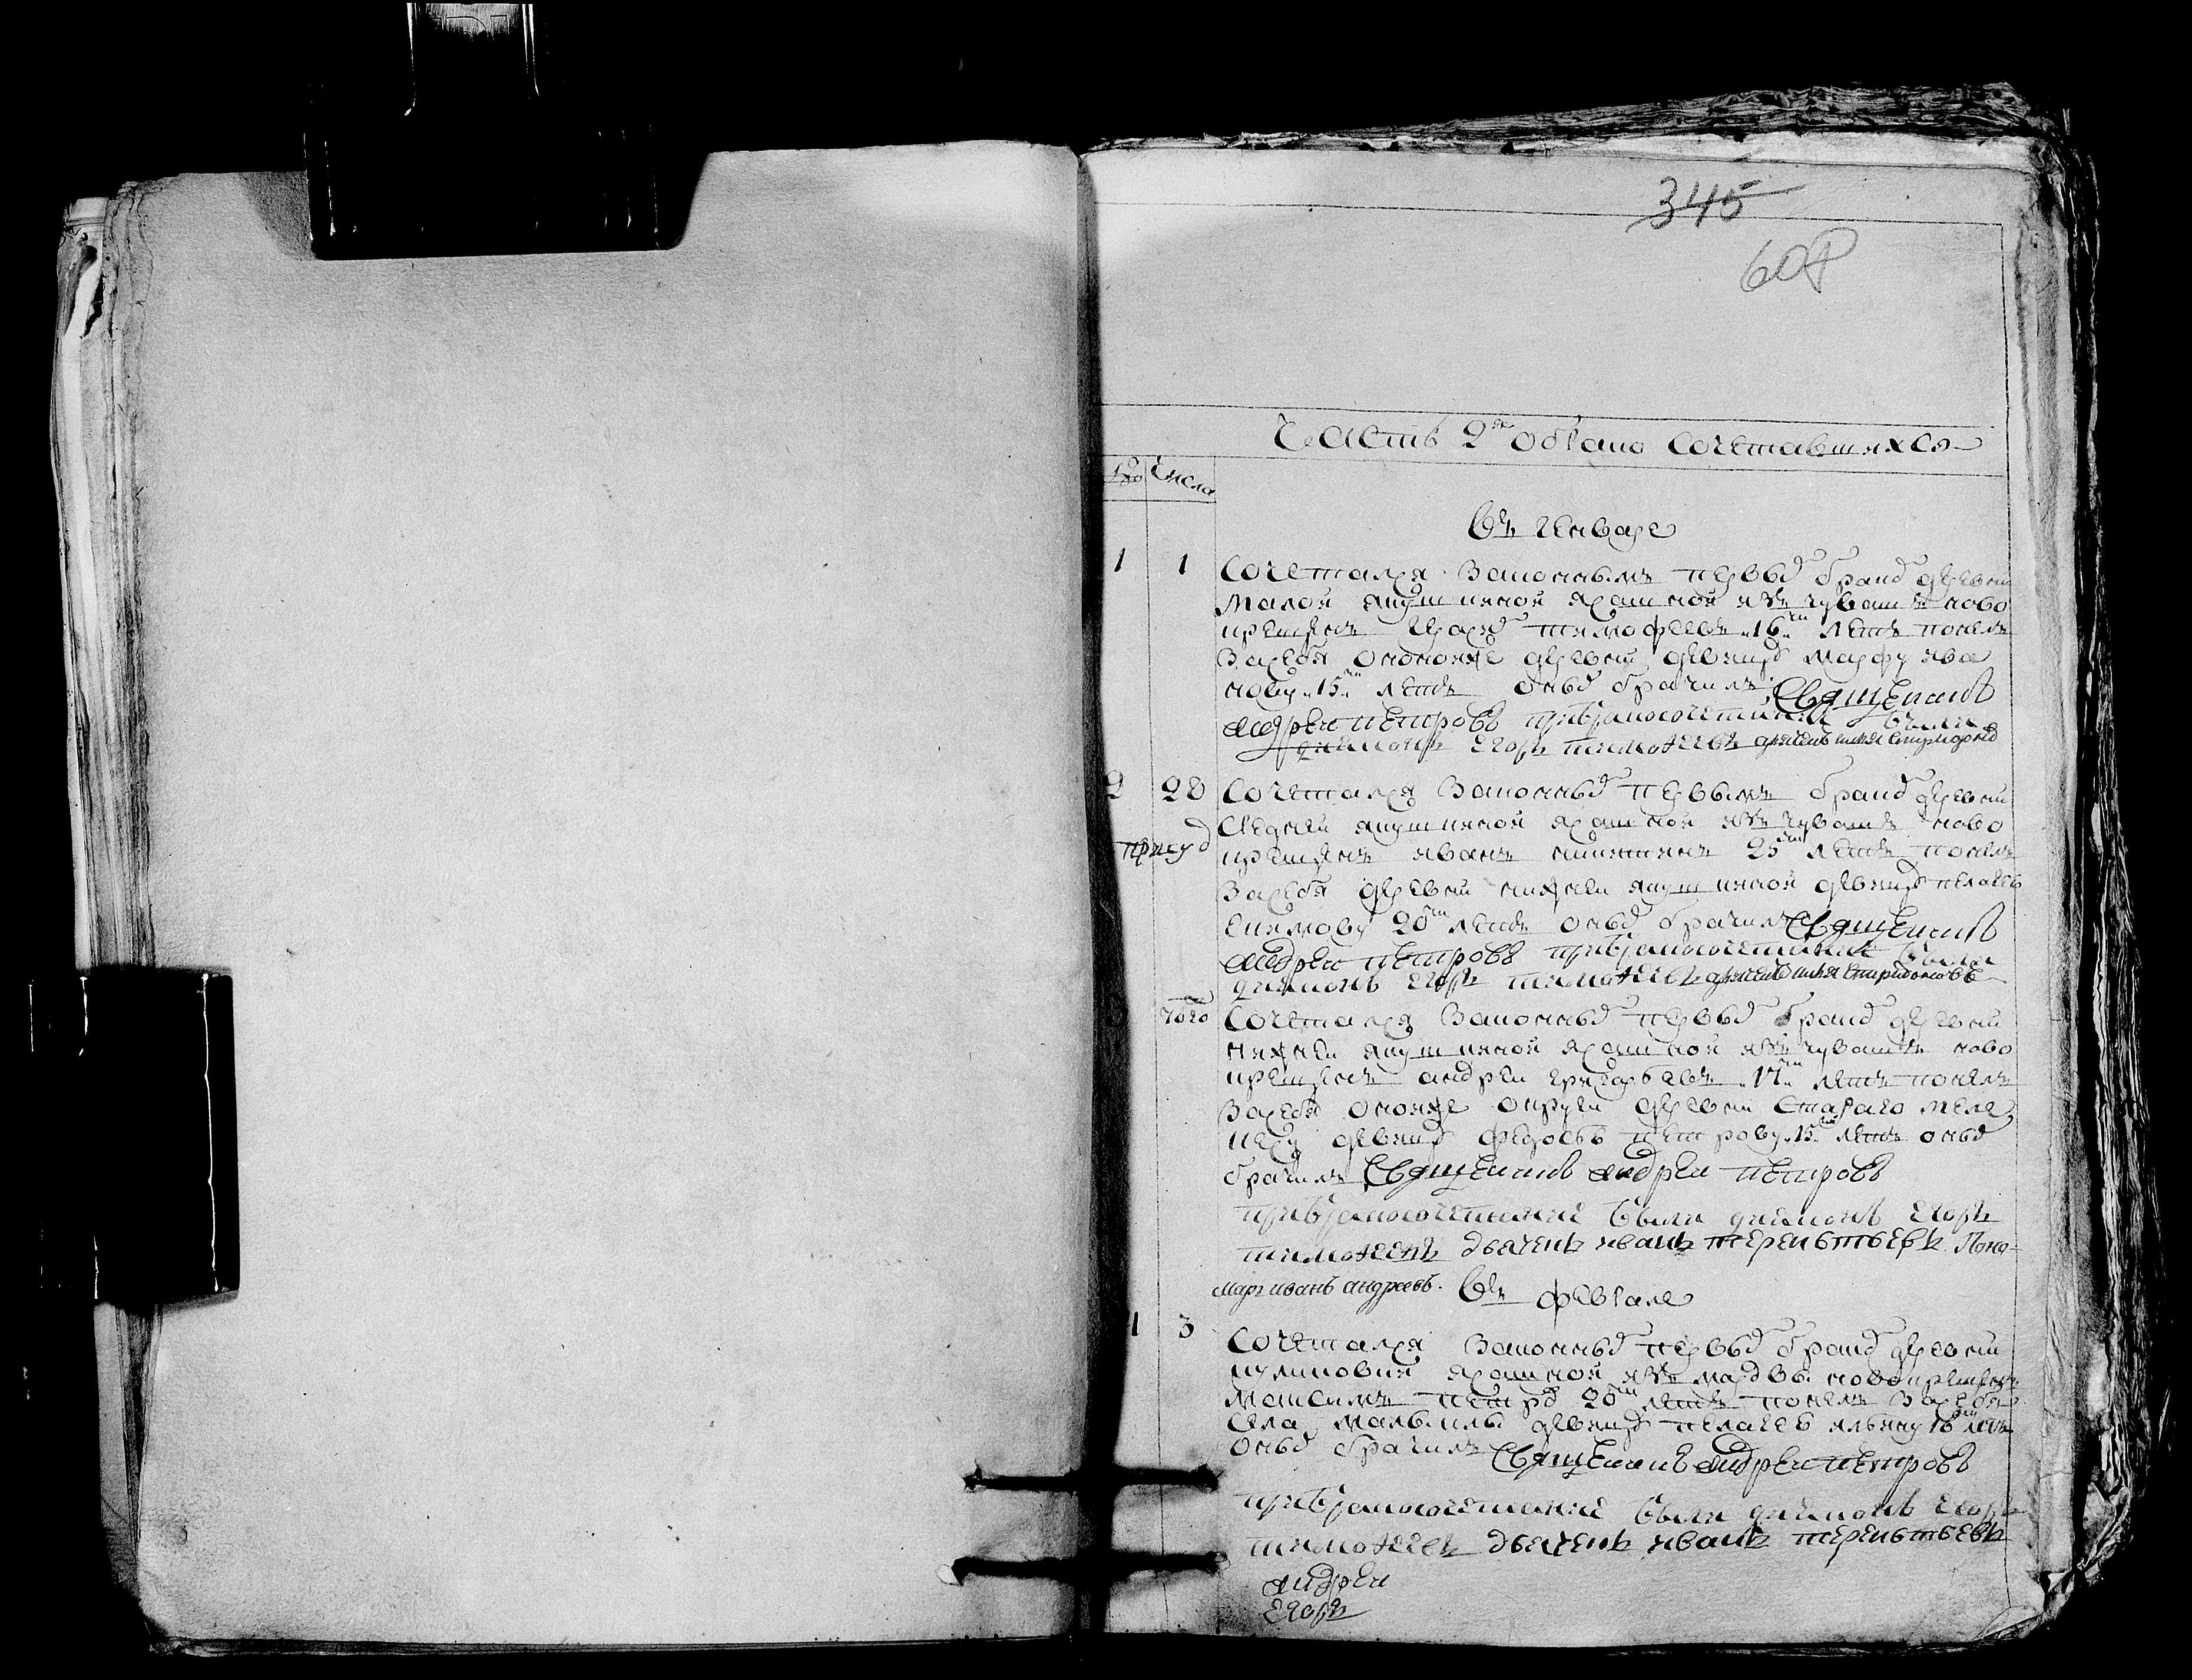 345
608
Часть 2я о бракосочетавшихся
Числа
Въ генваре
1 1 Сочетался законнымъ первы браком деревни
малой якушкиной ясашной изъ чувашъ ново
крещенъ тимофеевъ 16ти летъ понялъ
за себя оной же деревни девицу марфу ива
нову 15ти летъ оныхъ брачилъ Священникъ
андреи петровъ при бракосочетании были
диаконъ егоръ тимофеевъ дьячекъ илья
2 28 Сочетался законны первымъ браком деревни
средней якушкиной ясашной изъ чувашъ ново
крещенъ иванъ никитинъ 25ти летъ понялъ
за себя деревни нижней якушкиной девицу пелагею
екимову 20ти летъ оныхъ брачилъ Священникъ
андреи петровъ при бракосочетании были
диаконъ егоръ тимофеевъ дьячекъ илья спиридоновъ
того Сочетался законны первы браком деревни
нижней якушкиной ясашной изъ чувашъ ново
крещенъ андреи григорьевъ 17ти летъ понялъ
за себя оной же округи деревни Стараго
девицу федосью петрову 15ти летъ оныхъ
брачилъ Священникъ андреи петровъ
при бракосочетании были диаконъ егоръ
тимофеевъ дьячекъ иванъ терентьевъ Поно-
марь иванъ андреевъ. Въ феврале
1 3 Сочетался законны первы браком деревни
ясашной изъ мордвы новокрещенъ
максимъ 20ти летъ понялъ за себя
села девицу пелагею ильину 18ти летъ
оныхъ брачилъ Священникъ андреи петровъ
при бракосочетании были диаконъ егоръ
тимофеевъ дьячекъ иванъ терентьевъ
андреи
егоръ